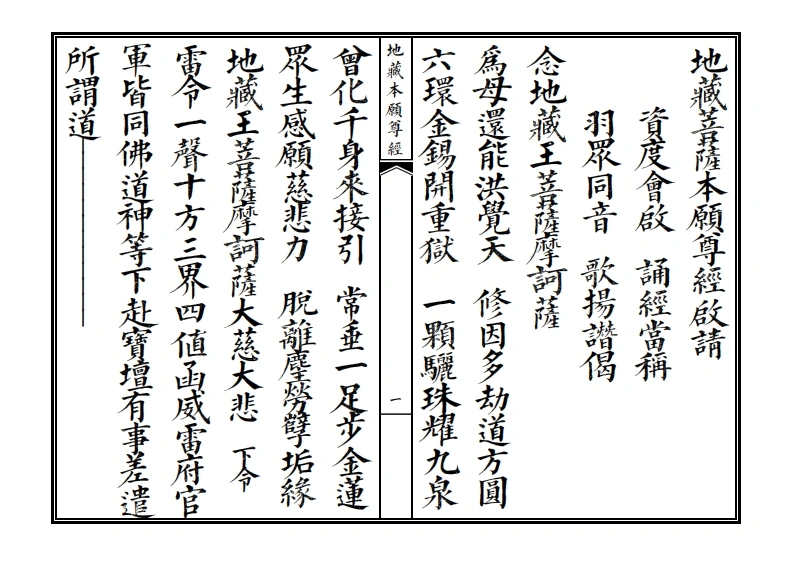 地藏菩薩本願尊經啟請
資度會啟　誦經當稱
羽眾同音　歌揚讚偈
念地藏王菩薩摩訶薩
爲母還能洪覺天　修因多劫道方圓
六環金錫開重獄　一顆驪珠耀九泉
地藏本願尊經
一
曾化千身來接引　常垂一足步金蓮
眾生感願慈悲力　脫離塵勞孽垢緣
地藏王菩薩摩訶薩大慈大悲　下令
雷令一聲十方三界四值函威雷府官
軍皆同佛道神等下赴寶壇有事差遣
所謂道